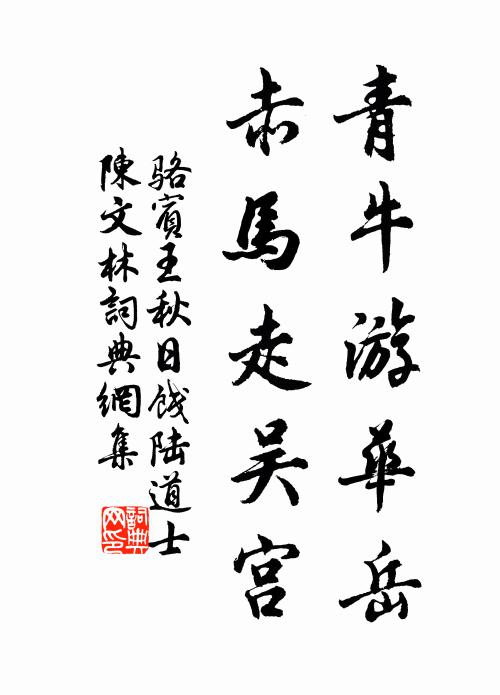 青牛游華岳
赤馬走吴宫
骆賓王秋日饯陆道士
陳文林詞典網集
詞典
网印